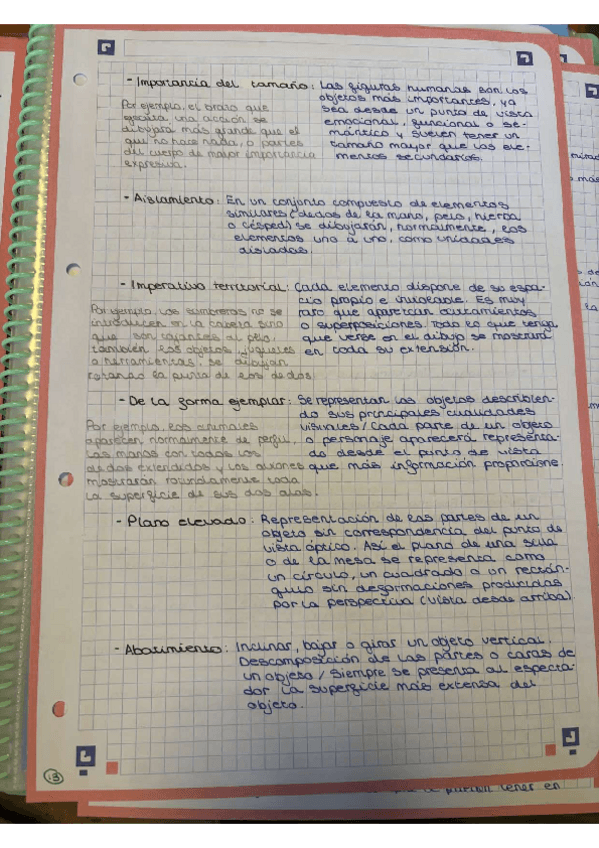 - Importancia del tamaño: Las figuras humanas son los
objetos más importantes, ya
sea desde un punto de vista
emocional, funcional o se-
mántico y suelen tener un
tamaño mayor que los ele-
mentos secundarios.
Por ejemplo, el brazo que
ejecuta una acción se
dibujará más grande que el
que no hace nada, o partes
del cuerpo de mayor importancia
expresiva.
- Aislamiento: En un conjunto compuesto de elementos
similares (dedos de la mano, pelo, hierba
o césped) se dibujarán, normalmente, los
elementos uno a uno, como unidades
aisladas.
- Imperativo territorial: Cada elemento dispone de su espa-
cio propio e inviolable. Es muy
raro que aparezcan ocultamientos
o superposiciones. Todo lo que tenga
que verse en el dibujo se mostrará
en toda su extensión.
Por ejemplo, los sombreros no se
introducen en la cabeza sino
que son tajantes al pelo,
también los objetos, juguetes
o herramientas, se dibujan
rozando la punta de los dedos.
- De la forma ejemplar: Se representan los objetos describien-
do sus principales cualidades
visuales / Cada parte de un objeto
o personaje aparecerá representa-
do desde el punto de vista
que más información proporcione.
Por ejemplo, los animales
aparecen normalmente de perfil,
las manos con todos los
dedos extendidos y los aviones
mostrarán rotundamente toda
la superficie de sus dos alas.
- Plano elevado: Representación de las partes de un
objeto sin correspondencia del punto de
vista óptico. Así el plano de una silla
o de la mesa se representa como
un círculo, un cuadrado o un rectán-
gulo sin deformaciones producidas
por la perspectiva (vista desde arriba)
- Abatimiento: Inclinar, bajar o girar un objeto vertical.
Descomposición de las partes o caras de
un objeto / Siempre se presenta al especta-
dor la superficie más extensa del
objeto.
13
tener en